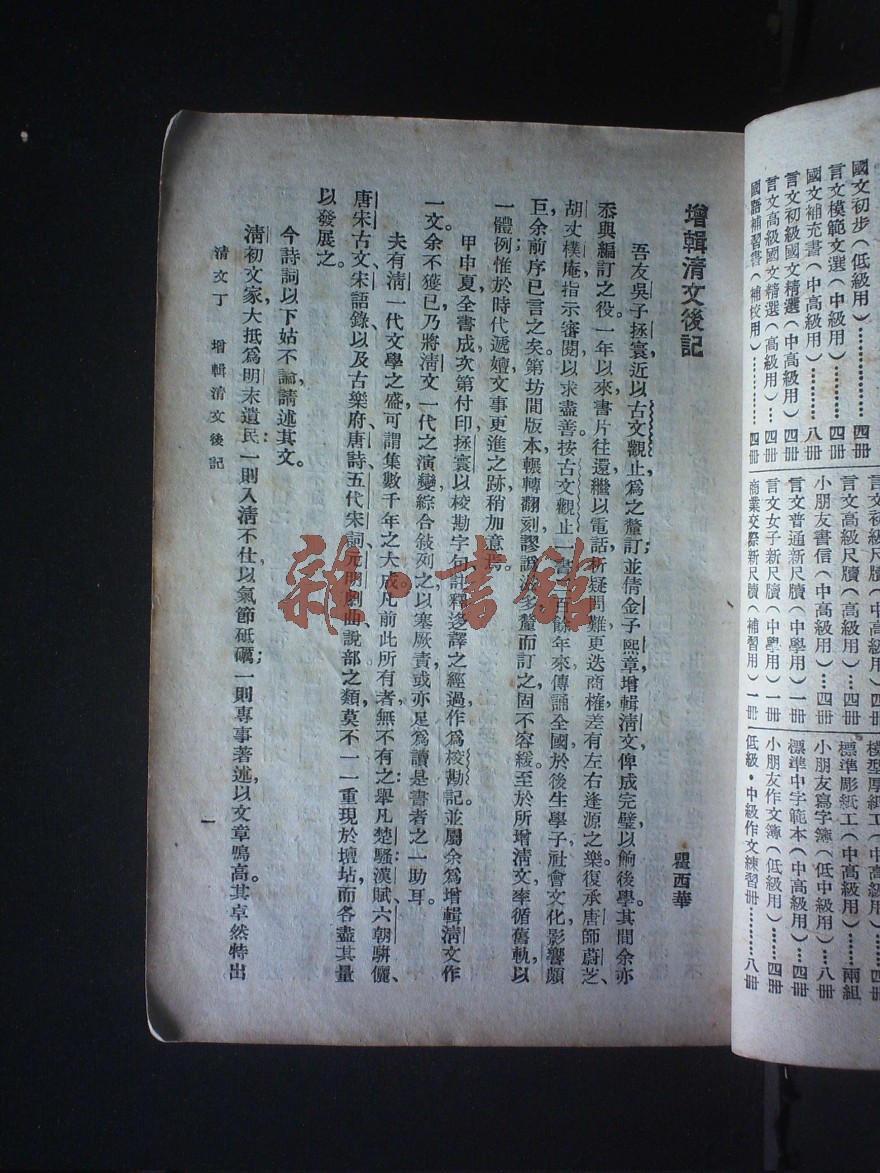 國文初步（低級用）………四冊
言文模範文選（中級用）…四冊
國文補充書（中高級用）………八冊
言文初級國文精選（中高級用）…四冊
言文高級國文精選（高級用）…四冊
國語補習書（補校用）………四冊
言文初級尺牘（中高級用）…四冊
言文高級尺牘（中高級用）…四冊
小朋友書信（中高級用）…四冊
言文普通新尺牘（中學用）一冊
言文女子新尺牘（中學用）一冊
商業交際新尺牘（補習用）一冊
模型厚紙工（中高級用）……兩組
標準彫紙工（中高級用）……四冊
小朋友寫字簿（低中級用）…八冊
標準中字範本（中高級用）…四冊
小朋友作文簿（低級用）……四冊
低級·中級作文練習冊………八冊
增輯清文後記
瞿西華
吾友吳子拯寰，近以古文觀止爲之釐訂；並倩金子熙章增輯清文，俾成完璧以餉後學。其間余亦
忝與編訂之役。一年以來，書片往還，繼以電話，析疑問難，更迭商榷，差有左右逢源之樂。復承唐師蔚芝、
胡丈樸庵，指示審閱，以求盡善。按古文觀止一書，百餘年來，傳誦全國，於後生學子社會文化，影響頗
巨，余前序已言之矣。第坊間版本，輾轉翻刻，謬說滋多，釐而訂之，固不容緩。至於所增清文，率循舊軌，以
一體例；惟於時代遞嬗，文事更進之跡，稍加意焉。
甲申夏，全書成，次第付印，拯寰以校勘字句，註釋迻譯之經過，作爲校勘記。並屬余爲增輯清文作
一文，余不獲已，乃將清文一代之演變，綜合敍列之，以塞厥責，或亦足爲讀是書者之一助耳。
夫有清一代文學之盛，可謂集數千年之大成，凡前此所有者，無不有之：舉凡楚騷、漢賦、六朝駢儷、
唐宋古文、宋語錄、以及古樂府、唐詩、五代宋詞、元明劇曲說部之類，莫不一一重現於壇坫，而各盡其量
以發展之。
今詩詞以下姑不論，請述其文。
清初文家，大抵爲明末遺民：一則入清不仕，以氣節砥礪；一則專事著述，以文章鳴高。其卓然特出
清文丁　增輯清文後記
一
雜·書館